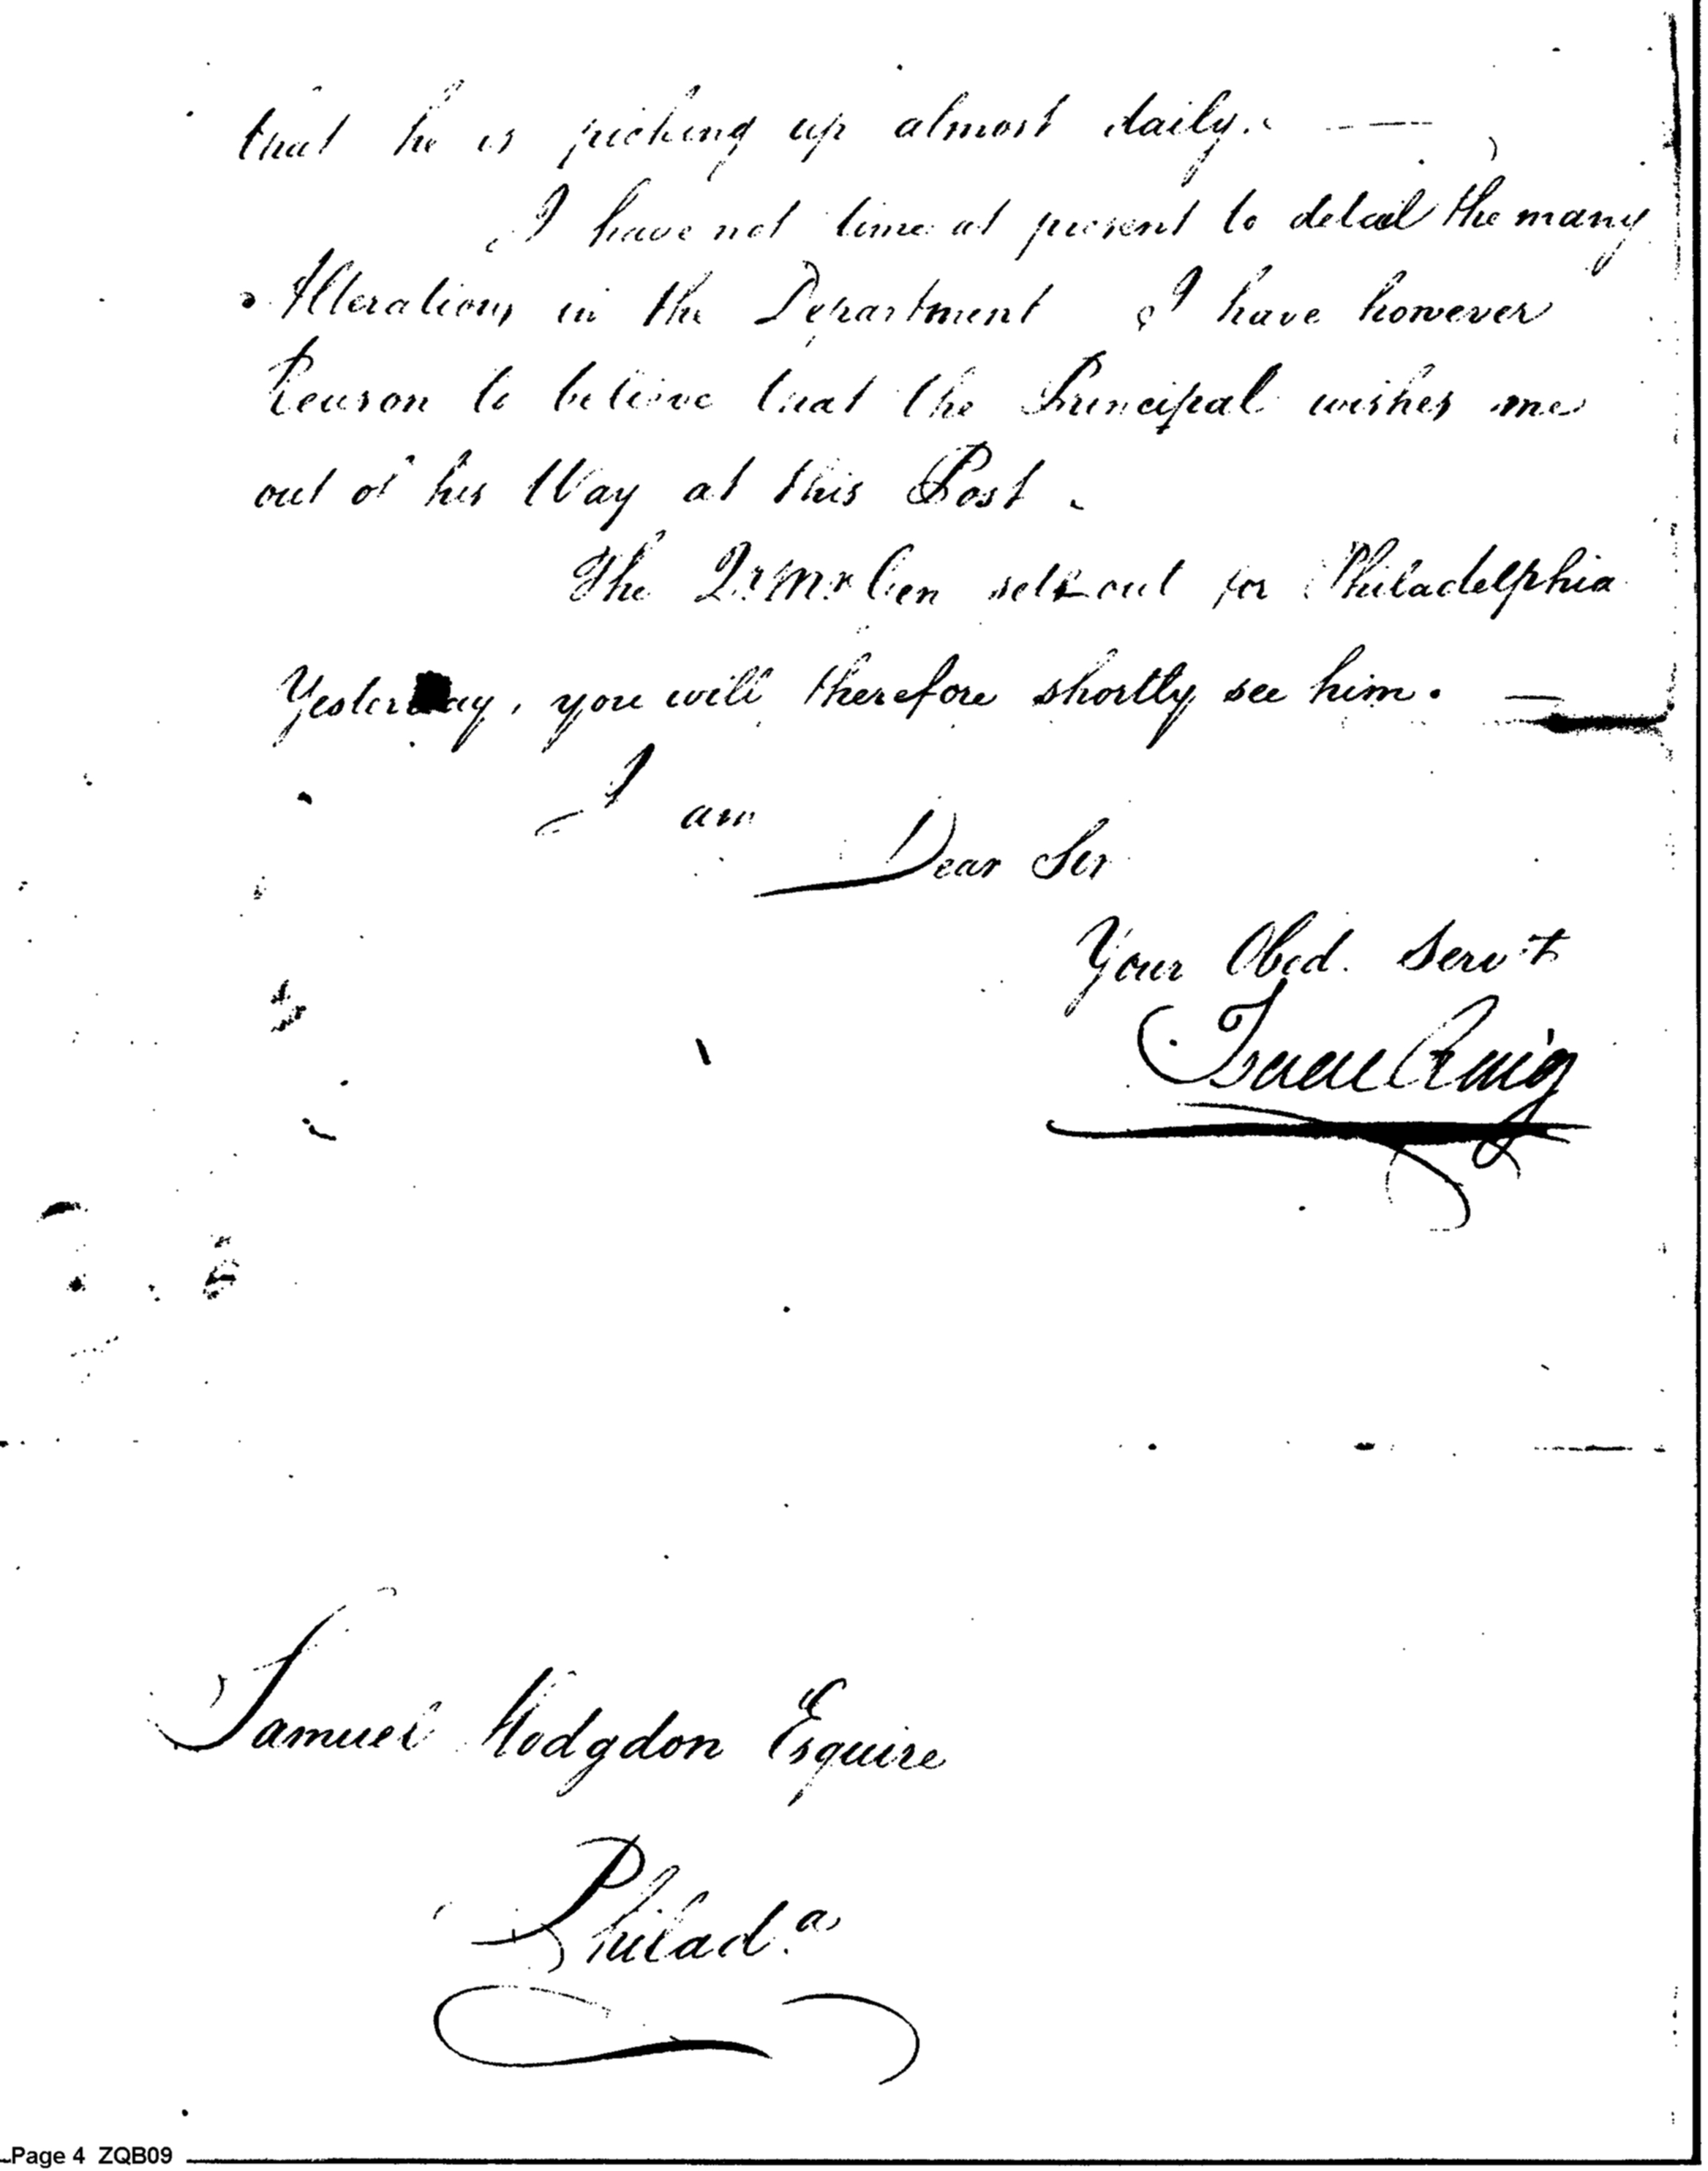 that he is picking up almost daily. —
I have not time at present to detail the many
Alterations in the Department I have however
Reason to believe that the Principal wishes me
out of his Way at this Post.
The Qr Mr Gen sett out for Philadelphia
Yesterday, you will therefore shortly see him. —
I am
Dear Sir
Your Obed. Servt
Isaac Craig
Samuel Hodgdon Esquire
Philad.a
Page 4 ZQB09